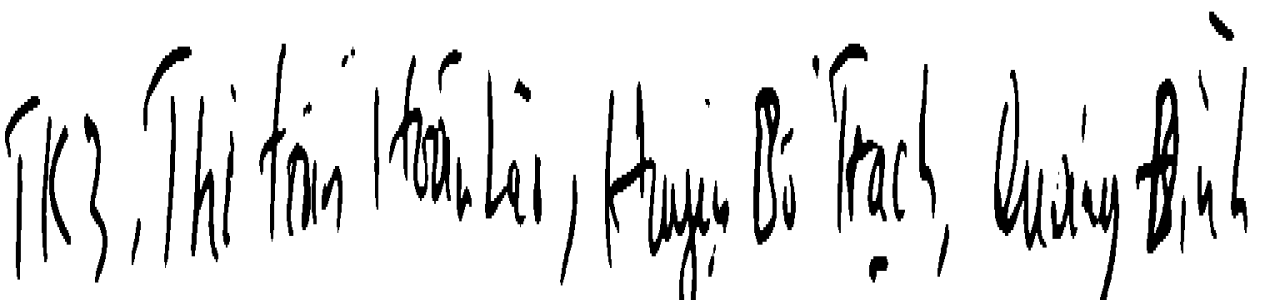 TK3, Thị trấn Hoàn Lão, Huyện Bố Trạch, Quảng Bình